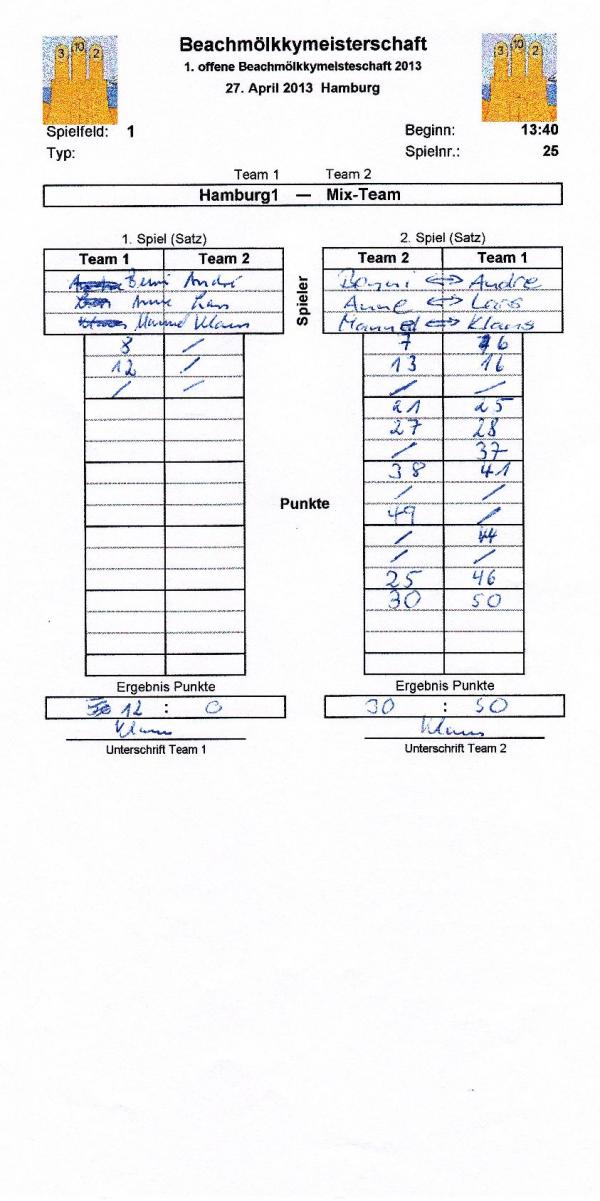 3 10 2
Beachmölkkymeisterschaft
3 10 2
1. offene Beachmölkkymeisteschaft 2013
27. April 2013 Hamburg
Spielfeld: 1 Beginn: 13:40
Typ: Spielnr.: 25
Team 1 Team 2
Hamburg1 — Mix-Team
1. Spiel (Satz) 2. Spiel (Satz)
Team 1 Team 2 Spieler Team 2 Team 1
André Benni <=> Andre
Anne Lars Anne <=> Lars
Klaus Manuel <=> Klaus
8 / 7 16
12 / 13 16
/ / / /
21 25
27 28
/ 37
38 41
/ /
Punkte
49 /
/ 44
/ /
25 46
30 50
Ergebnis Punkte Ergebnis Punkte
12 : 0 30 : 50
Klaus Klaus
Unterschrift Team 1 Unterschrift Team 2